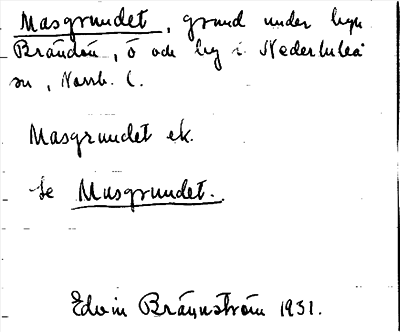 Masgrundet, grund under hgn
Brändön, ö och by i Nederluleå
sn, Norrb. l.
Masgrundet ek.
Se Musgrundet.
Edvin Brännström 1931.